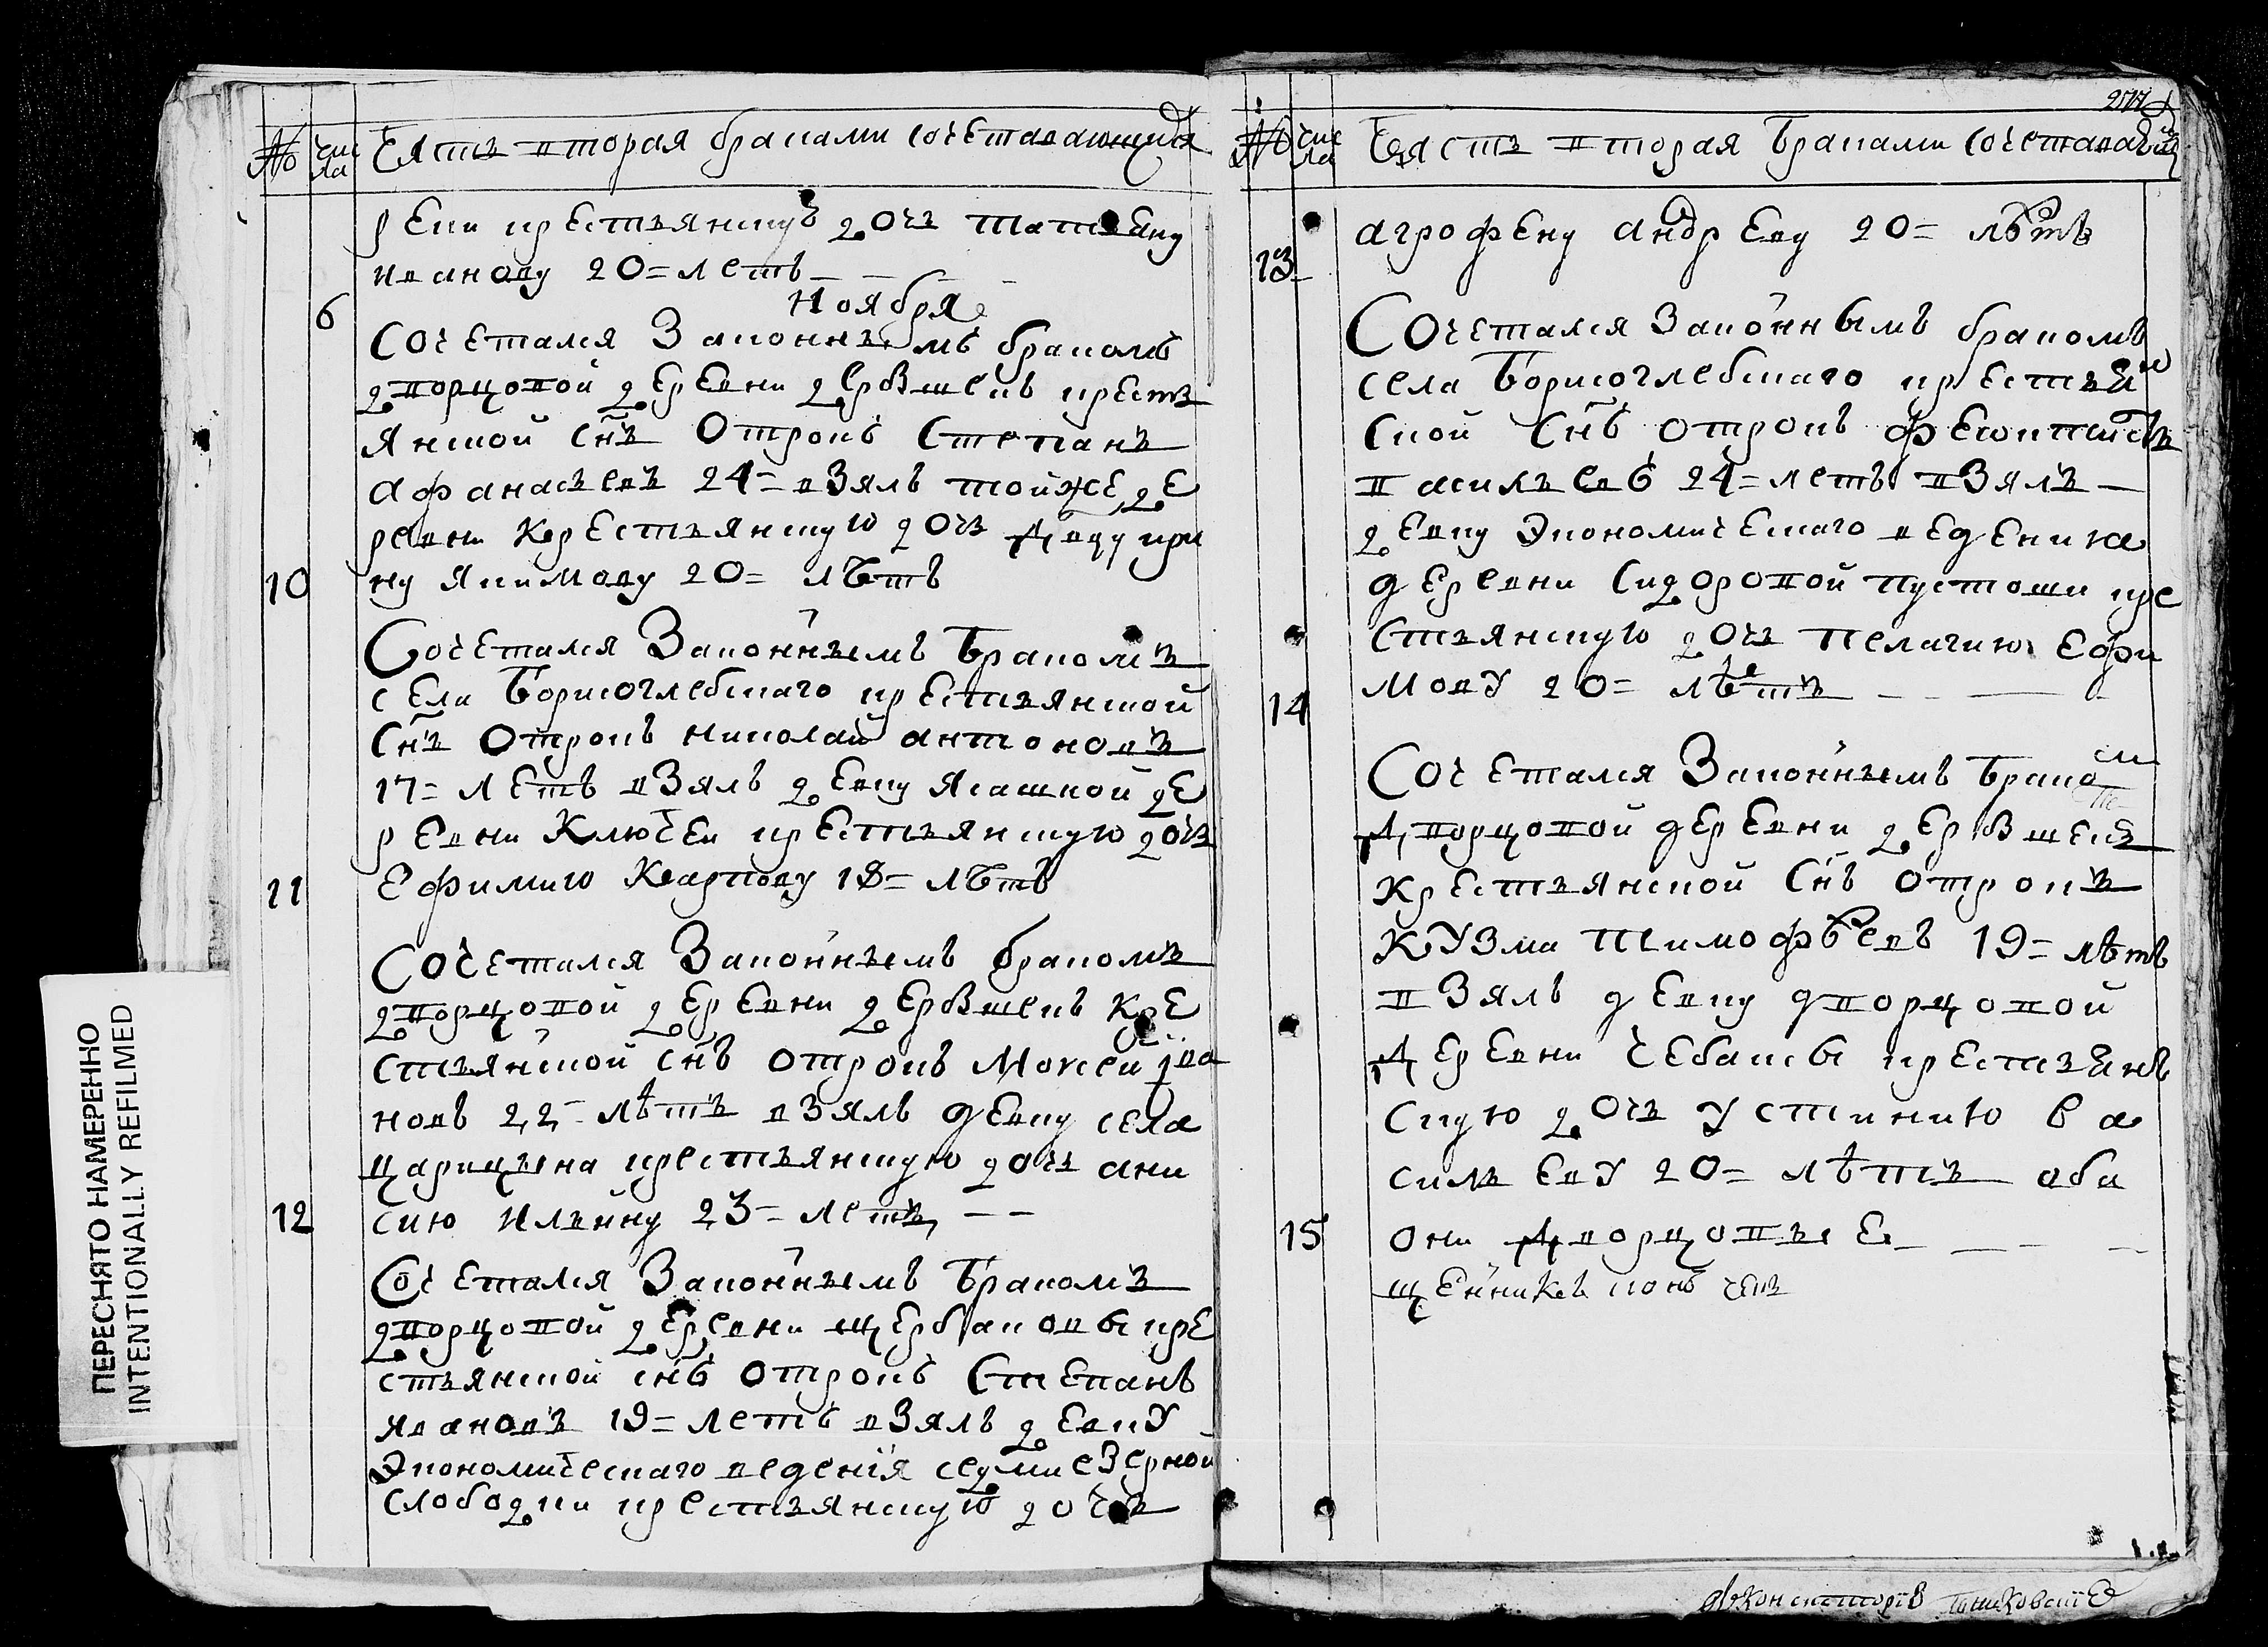 № чис ла Часть вторая браками сочетавающихся
ревни крестьянскую дочь татьяну
иванову 20 = летъ
Ноября
6
Сочетался Законнымъ бракомъ
дворцовой деревни дербышекъ кресть
янской снъ Отрокъ Степанъ
афанасьевъ 24 = взялъ тойже де
ревни крестьянскую дочь Девцу ири
10 ну якимову 20 = лѣтъ
Сочетался Законнымъ бракомъ
села борисоглебскаго крестьянской
снъ Отрокъ николай антоновъ
17 = летъ взялъ девку ясашной де
ревни Ключеи крестьянскую дочь
11 Ефимию Карпову 18 = лѣтъ
Сочетался Законнымъ бракомъ
дворцовой деревни дербышекъ кре
стьянской снъ отрокъ Моисеи ива
новъ 22 = лѣтъ взялъ девку села
царицына крестьянскую дочь ани
12 сию ильину 23 = летъ
Сочетался Законнымъ бракомъ
дворцовой деревни щербаковы кре
стьянской снъ отрокъ Степанъ
явановъ 19 = летъ взялъ девкУ
Экономическаго ведения седмиезерной
слободки крестьянскую дочь
№ чис ла Часть вторая браками сочетаваю
агрофену андрееву 20 = лѣтъ
13
Сочетался Законнымъ бракомъ
села борисоглебскаго крестьян
ской снъ отрокъ феоктистъ
васильевъ 24 = летъ взялъ
девку Экономическаго ведения
деревни сидоровой пустоши кре
стьянскую дочь пелагию ефи
14 мовУ 20 = лѣтъ
Сочетался Законнымъ бракомъ
Дворцовой деревни дербышекъ
Крестьянской снъ отрокъ
кУзма тимофѣевъ 19 = лѣтъ
взялъ девку дворцовой
Деревни Чебаксы крестьянъ
скую дочь Устинию ва
сильевУ 20 = лѣтъ оба
15 они Дворцовые
щенникъ
ПЕРЕСНЯТО НАМЕРЕННО
INTENTIONALLY REFILMED